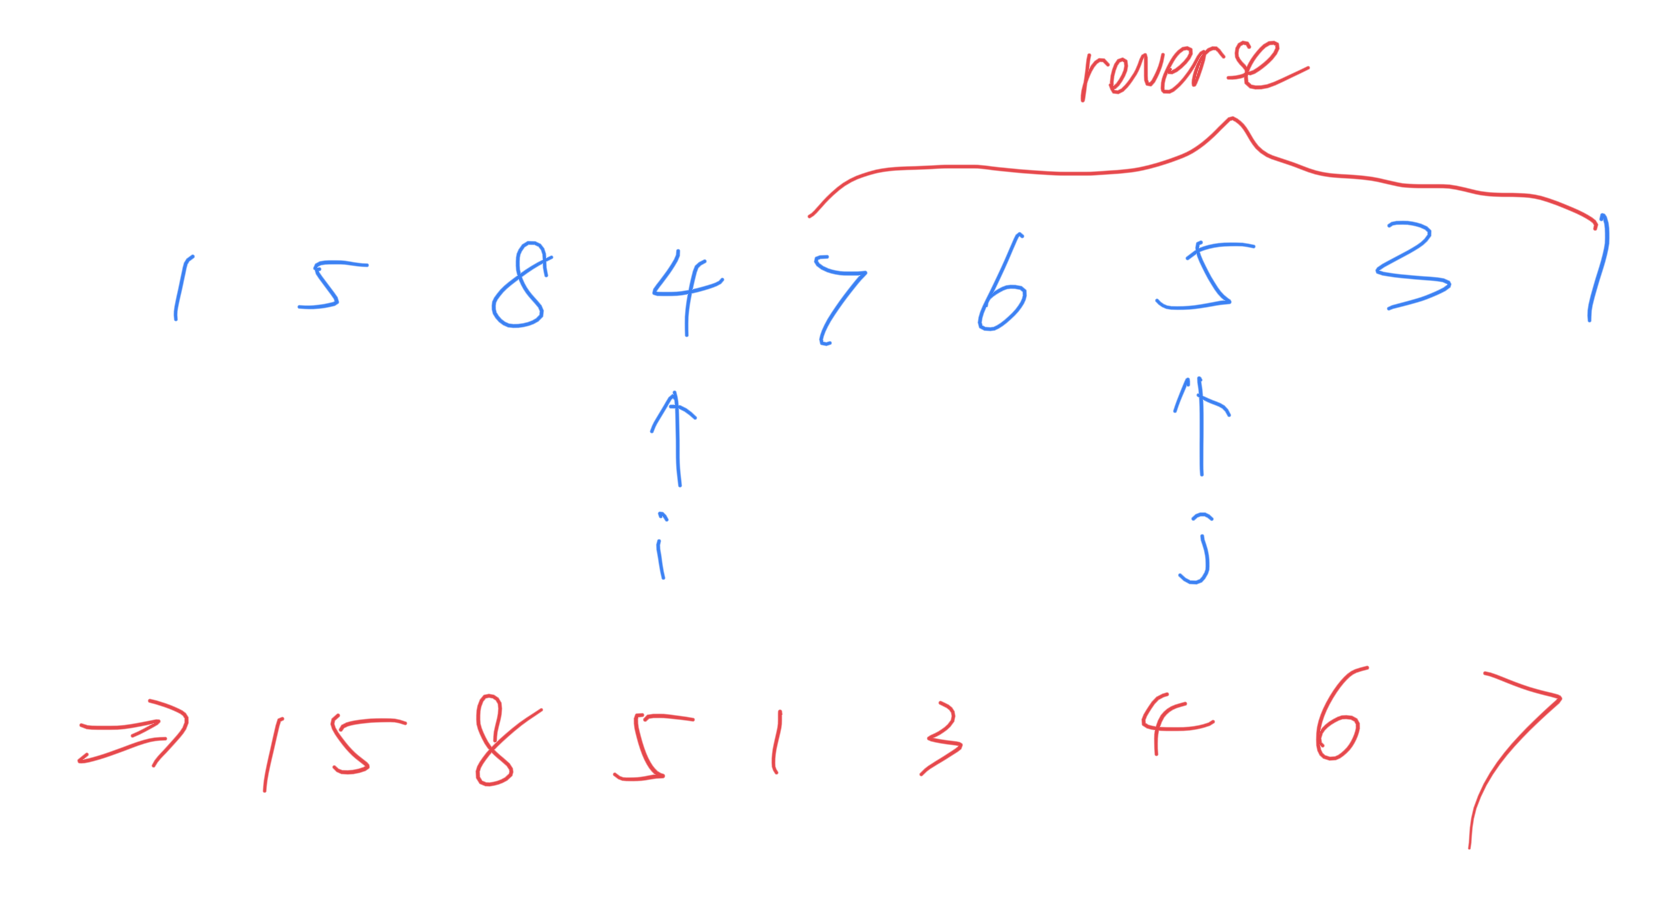 reverse
1 5 8 4 7 6 5 3 1
i j
⇒ 1 5 8 5 1 3 4 6 7